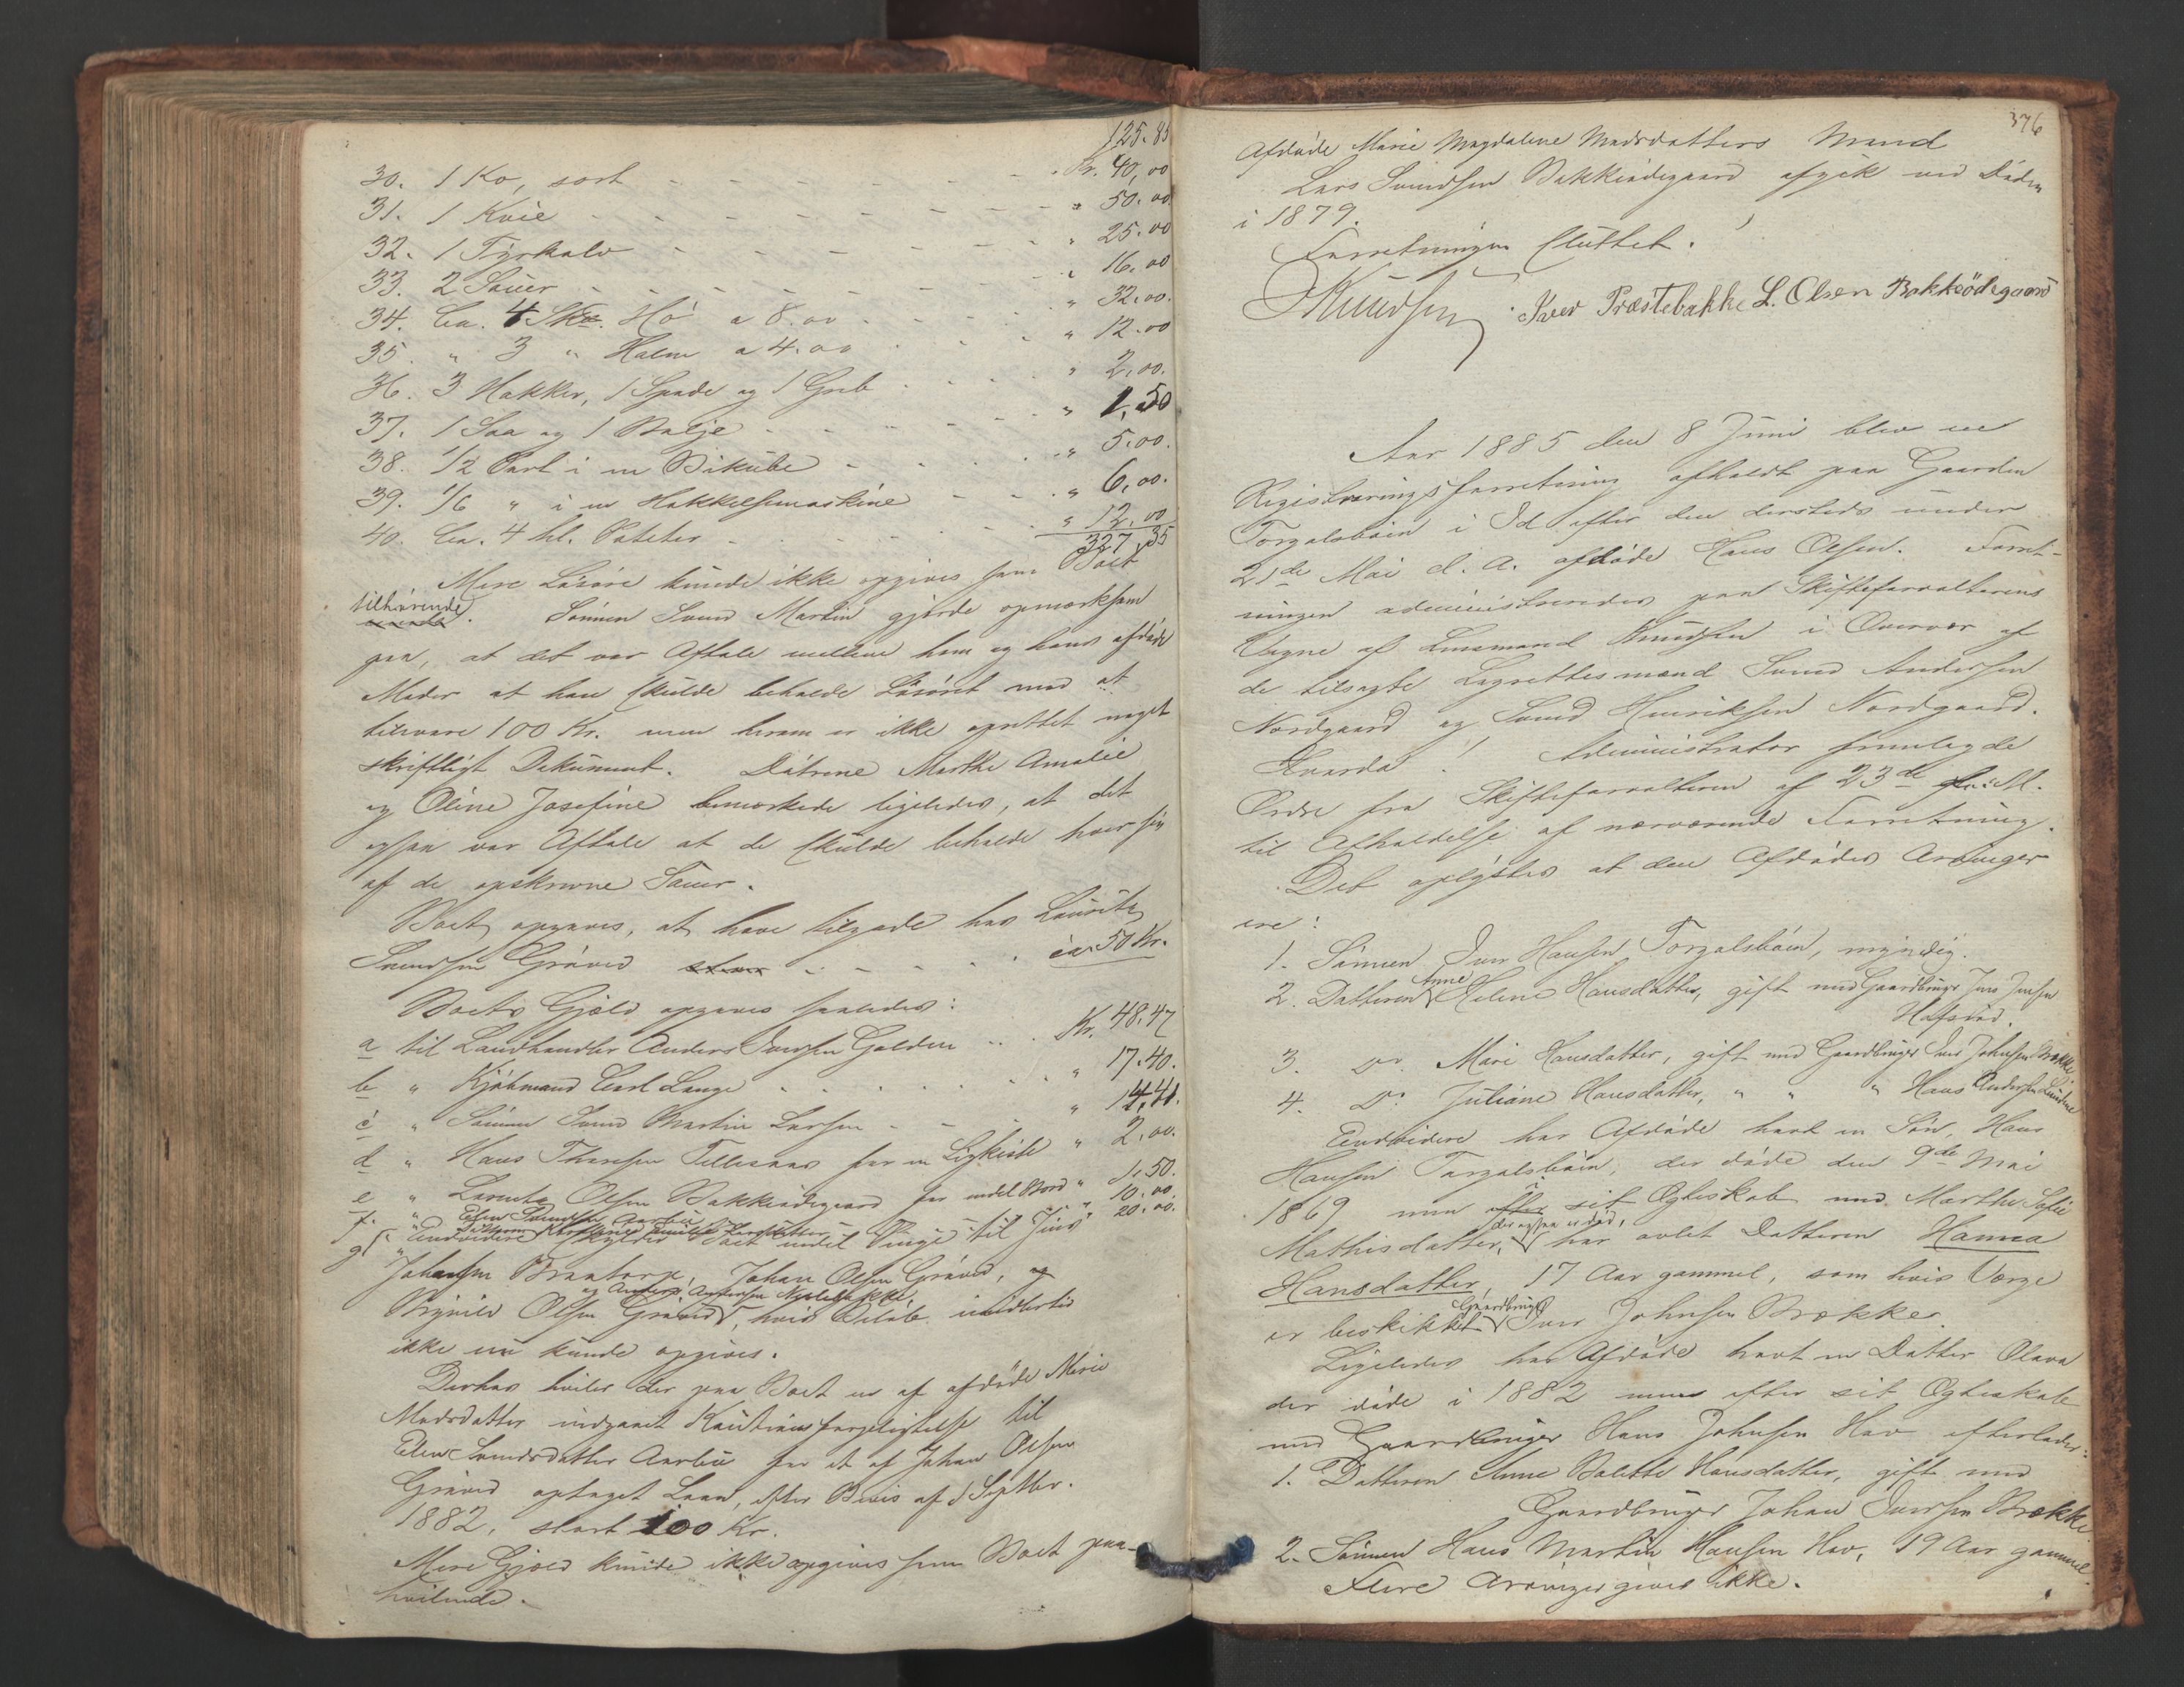 125.85
30. 1 Ko, sort - - - Kr. 40,00
31. 1 Kvie - - - " 50.00
32. 1 Tyrkalv - - - " 25.00
33. 2 Sauer - - - " 16.00
34. Ca. 4 Skm. Hø a 8.00 - - - " 32.00.
35. " 3 " Halm a 4.00 - - - " 12.00
36. 3 Hakker, 1 Spade og 1 Greb - - - " 2,00.
37. 1 Saa og 1 Balje - - - " 1,50
38. 1/2 Part i en Bikube - - - " 5.00.
39. 1/6 " i en Hakkelsemaskine - - - " 6,00.
40. Ca. 4 hl. Poteter - - - " 12,00
327,35
Mere Løsøre kunde ikke opgives som Boet
tilhørende. Sønnen Svend Martin gjorde opmærksom
paa, at det var Aftale mellem ham og hans afdøde
Moder at han skulde beholde Løsøret mod at
tilsvare 100 Kr. men herom er ikke oprettet noget
skriftligt Dokument. Døtrene Marthe Amalie
og Oline Josefine bemærkede ligeledes, at det
ogsaa var Aftale at de skulde beholde hver sin
af de opskrevne Sauer.
Boet opgaves, at have tilgode hos Lauritz
Svendsen Graaved - - - ca. 50 Kr.
Boets Gjæld opgaves saaledes:
a til Landhandler Anders Iversen Golden - - Kr. 48.47
b " Kjøbmand Carl Lange - - - " 17.40.
c " Sønnen Svend Martin Larsen - - - " 14,41.
d " Hans Thoresen Tellesaas for en Ligkiste " 2,00.
e " Lorentz Olsen Bakkeødegaard for endel Bord " 1,50.
f. " Elen Svendsen Aarbu " 10.00.
g " Datteren Karoline Emilie Larsdatter " 20.00.
Endvidere skylder Boet endel Penge til Jens
Johansen Brantorp, Johan Olsen Graaved, og
og Anders Andersen Nebelbakke
Brynild Olsen Graaved, hvis Beløb imidlertid
ikke nu kunde opgives.
Derhos hviler der paa Boet en af afdøde Marie
Madsdatter indgaaet Kautionsforpligtelse til
Elen Svendsdatter Aarbu for et af Johan Olsen
Graaved optaget Laan, efter Bevis af 5 Septbr.
1882, stort 100 Kr.
Mere Gjæld kunde ikke opgives som Boet paa-
hvilende.
376
Afdøde Marie Magdalene Madsdatters Mand
Lars Svendsen Bakkeødegaard afgik ved Døden
i 1879.
Forretningen sluttet.
Knudsen Iver Præstebakke L. Olsen Bakkeødegaard
Aar 1885 den 8 Juni blev en
Registreringsforretning afholdt paa Gaarden
Torgalsbøen i Id efter den dersteds under
21de Mai d. A. afdøde Hans Olsen. Forret-
ningen administreredes paa Skifteforvalterens
Vegne af Lensmand Knudsen i Overvær af
de tilsagte Lagrettesmænd Svend Andersen
Nordgaard og Svend Henriksen Nordgaard.
Hvorda! Administrator fremlagde
Ordre fra Skifteforvalteren af 23de f. M.
til Afholdelse af nærværende Forretning.
Det oplystes at den Afdødes Arvinger
ere:
1. Sønnen Iver Hansen Torgalsbøen, myndig.
2. Datteren Anne Helene Hansdatter, gift med Gaardbruger Jens Jensen
Hafsrød.
3. Do. Mari Hansdatter, gift med Gaardbruger Iver Johnsen Brække
4. Do. Juliane Hansdatter, " " " Hans Andersen
Endvidere har Afdøde havt en Søn, Hans
Hansen Torgalsbøen, der døde den 9de Mai
1869 men i sit Ægteskab med Marthe Sofie
Mathisdatter, der ogsaa er død, har avlet Datteren Hanna
Hansdatter, 17 Aar gammel, som hvis Værge
er beskikket Gaardbruger Iver Johnsen Brække.
Ligeledes har Afdøde havt en Datter Olava
der døde i 1882 men efter sit Ægteskab
med Gaardbruger Hans Johnsen Hov efterlader:
1. Datteren Anne Bolette Hansdatter, gift med
Gaardbruger Johan Iversen Brække
2. Sønnen Hans Martin Hansen Hov, 19 Aar gammel.
Flere Arvinger gives ikke.